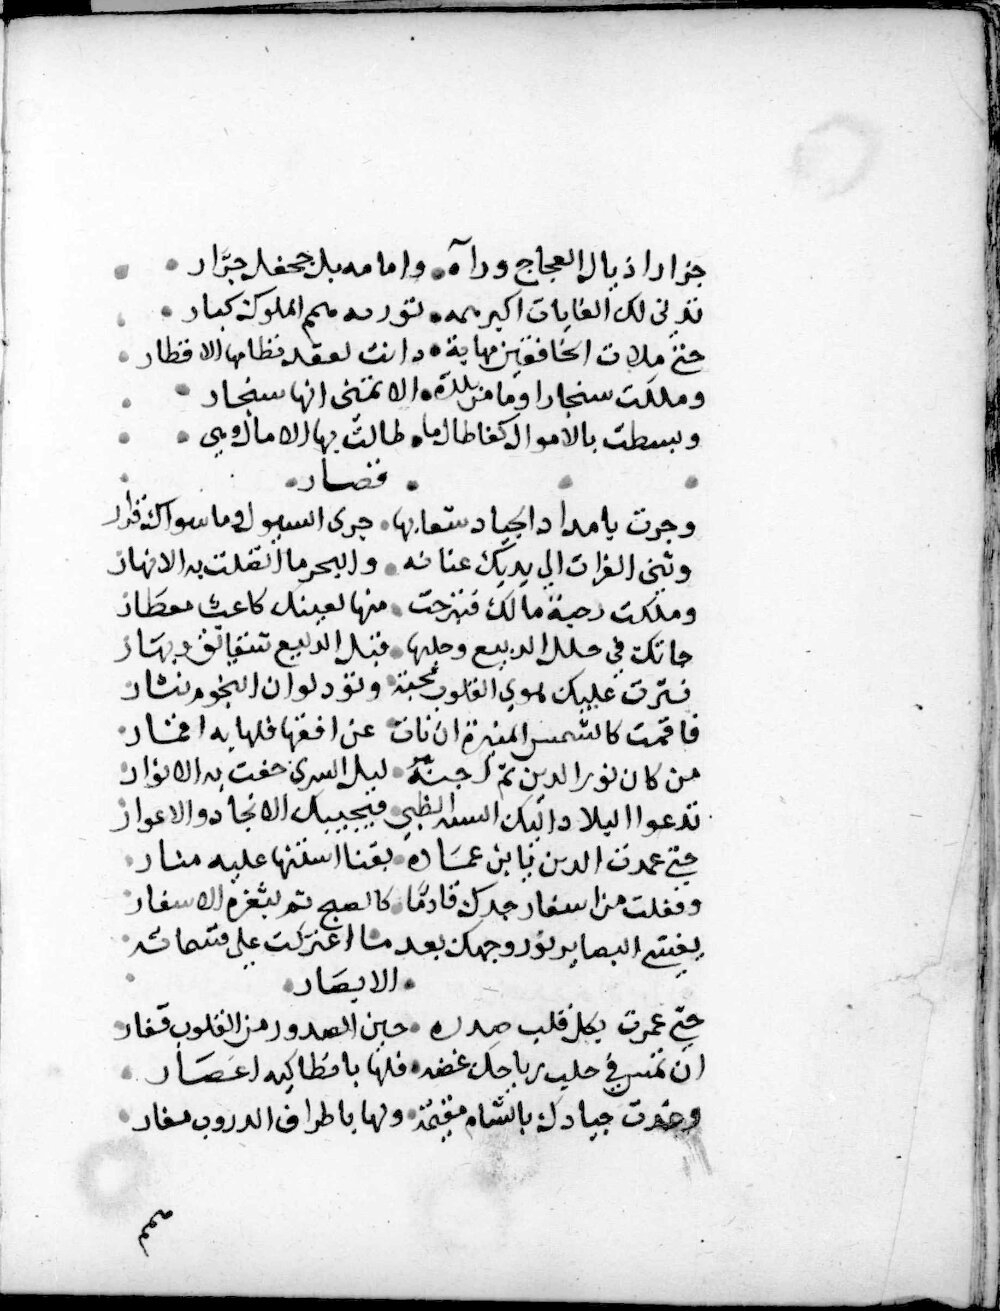 جرارا اذيال العجاج ورآه • وامامه بل جحفل جرَّار
تدنى لك الغايات اكبر همه • نور همم الملوك كبار
حتى ملات الخافقين مهابة • دانت لعقد نظامها الاقطار
وملكت سنجارا وما من بلدة • الا تمنى انها سنجار
وبسطت بالاموال كفا طال ما • طالت بها الامال وهي
• قصار •
وجرت بامداد الجياد شعابها • جرى السيول وما سواك قرار
وثنى الفرات الى يديك عنانه • والبحر ما اتصلت به الانهار
وملكت رحبة مالك فتبرجت • منها لعينك كاعب معطار
جاتك في حلل الربيع وحليها • قبل الربيع شقايق وبهار
نثرت عليك هوي القلوب محبة • وتود لو ان النجوم نثار
فاقمت كالشمس المنيرة ان نات • عن افقها فلها به اقمار
من كان نور الدين ثم اجنه • ليل السرى حفت به الانوار
تدعوا البلاد اليك السنه الظبي • فيجيبك الانجاد والاغوار
حتى عمدت الدين يا بن عماده • بقنا اسنتها عليه منار
وقفلت من اسفار جدك قادما • كالصبح نم بثغره الاسفار
يغشى البصاير نور وجهك بعد ما اعتركت على قسماته
• الابصار •
حتى عمرت بكل قلب صدره • حين الصدور من القلوب قفار
ان تمس في حلب رياحك غضه • فلها بانطاكيه اعصار
وغدت جيادك بالشام مقيمة • ولها باطراف الدروب مغار